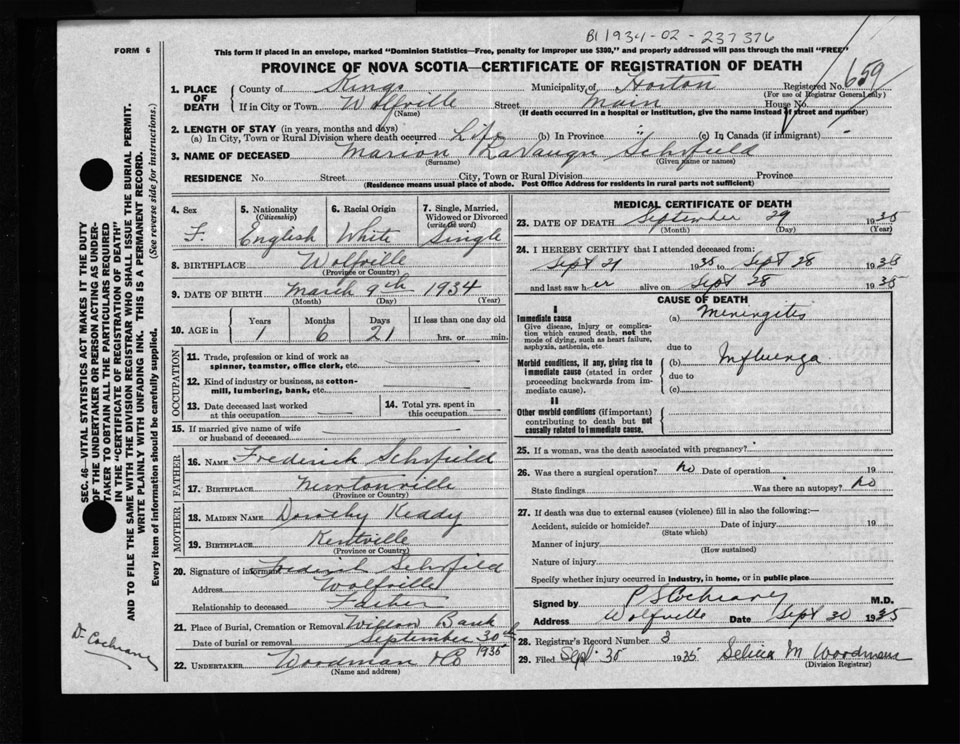 B1 1934-02-237376
FORM 6
This form if placed in an envelope, marked "Dominion Statistics—Free, penalty for improper use $300," and properly addressed will pass through the mail "FREE"
PROVINCE OF NOVA SCOTIA—CERTIFICATE OF REGISTRATION OF DEATH
1. PLACE OF DEATH County of Kings Municipality of Horton Registered No. 659
(For use of Registrar General only)
If in City or Town Wolfville Street Main House No.
(Name) (If death occurred in a hospital or institution, give the name instead of street and number)
2. LENGTH OF STAY (in years, months and days)
(a) In City, Town or Rural Division where death occurred Life (b) In Province " (c) In Canada (if immigrant)
3. NAME OF DECEASED Marion LaVaugn Schofield
(Surname) (Given name or names)
RESIDENCE No. Street City, Town or Rural Division Province
(Residence means usual place of abode. Post Office Address for residents in rural parts not sufficient)
4. Sex 5. Nationality (Citizenship) 6. Racial Origin 7. Single, Married, Widowed or Divorced (write the word)
F. English White Single
8. BIRTHPLACE Wolfville
(Province or Country)
9. DATE OF BIRTH March 9th 1934
(Month) (Day) (Year)
10. AGE in Years Months Days If less than one day old
1 6 21 hrs. or min.
OCCUPATION
11. Trade, profession or kind of work as spinner, teamster, office clerk, etc.
12. Kind of industry or business, as cotton-mill, lumbering, bank, etc.
13. Date deceased last worked at this occupation 14. Total yrs. spent in this occupation
15. If married give name of wife or husband of deceased
FATHER
16. NAME Frederick Schofield
17. BIRTHPLACE Newtonville
(Province or Country)
MOTHER
18. MAIDEN NAME Dorothy Keddy
19. BIRTHPLACE Kentville
(Province or Country)
20. Signature of informant Frederick Schofield
Address Wolfville
Relationship to deceased Father
21. Place of Burial, Cremation or Removal Willow Bank
Date of burial or removal September 30th 1935
22. UNDERTAKER Woodman & Co
(Name and address)
MEDICAL CERTIFICATE OF DEATH
23. DATE OF DEATH September 29 1935
(Month) (Day) (Year)
24. I HEREBY CERTIFY that I attended deceased from:
Sept 21 1935 to Sept 28 1935
and last saw her alive on Sept 28 1935
CAUSE OF DEATH
I
Immediate cause (a) Meningitis
Give disease, injury or complication which caused death, not the mode of dying, such as heart failure, asphyxia, asthenia, etc.
due to
Morbid conditions, if any, giving rise to immediate cause (stated in order proceeding backwards from immediate cause).
(b) Influenza
due to
(c)
II
Other morbid conditions (if important) contributing to death but not causally related to immediate cause.
25. If a woman, was the death associated with pregnancy?
26. Was there a surgical operation? no Date of operation 19
State findings Was there an autopsy? no
27. If death was due to external causes (violence) fill in also the following:—
Accident, suicide or homicide? Date of injury 19
(State which)
Manner of injury
(How sustained)
Nature of injury
Specify whether injury occurred in industry, in home, or in public place
Signed by P S Cochrane M.D.
Address Wolfville Date Sept 30 1935
28. Registrar's Record Number 3
29. Filed Sept. 30 1935 Selina M Woodman
(Division Registrar)
SEC. 46—VITAL STATISTICS ACT MAKES IT THE DUTY
OF THE UNDERTAKER OR PERSON ACTING AS UNDER-
TAKER TO OBTAIN ALL THE PARTICULARS REQUIRED
IN THE "CERTIFICATE OF REGISTRATION OF DEATH"
AND TO FILE THE SAME WITH THE DIVISION REGISTRAR WHO SHALL ISSUE THE BURIAL PERMIT.
WRITE PLAINLY WITH UNFADING INK. THIS IS A PERMANENT RECORD.
Every item of information should be carefully supplied. (See reverse side for instructions.)
Dr Cochrane